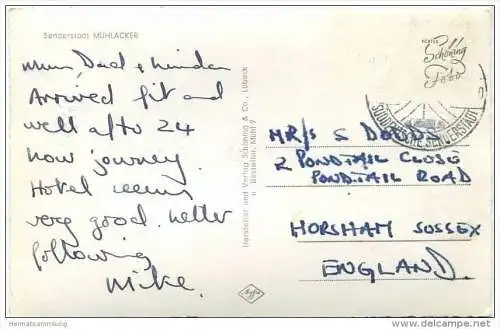 Senderstadt MÜHLACKER
Mum, Dad & Linda
Arrived fit and
well after 24
hour journey.
Hotel seems
very good. Letter
following
Mike.
Hersteller und Verlag Schöning & Co., Lübeck
Bestellnr. Mühl 9
Agfa
Schöning
Foto
SÜDDEUTSCHE SENDERSTADT
MR/S S DODDS
2 PONDTAIL CLOSE
PONDTAIL ROAD
HORSHAM SUSSEX
ENGLAND.
Heimatsammlung
www.delcampe.net